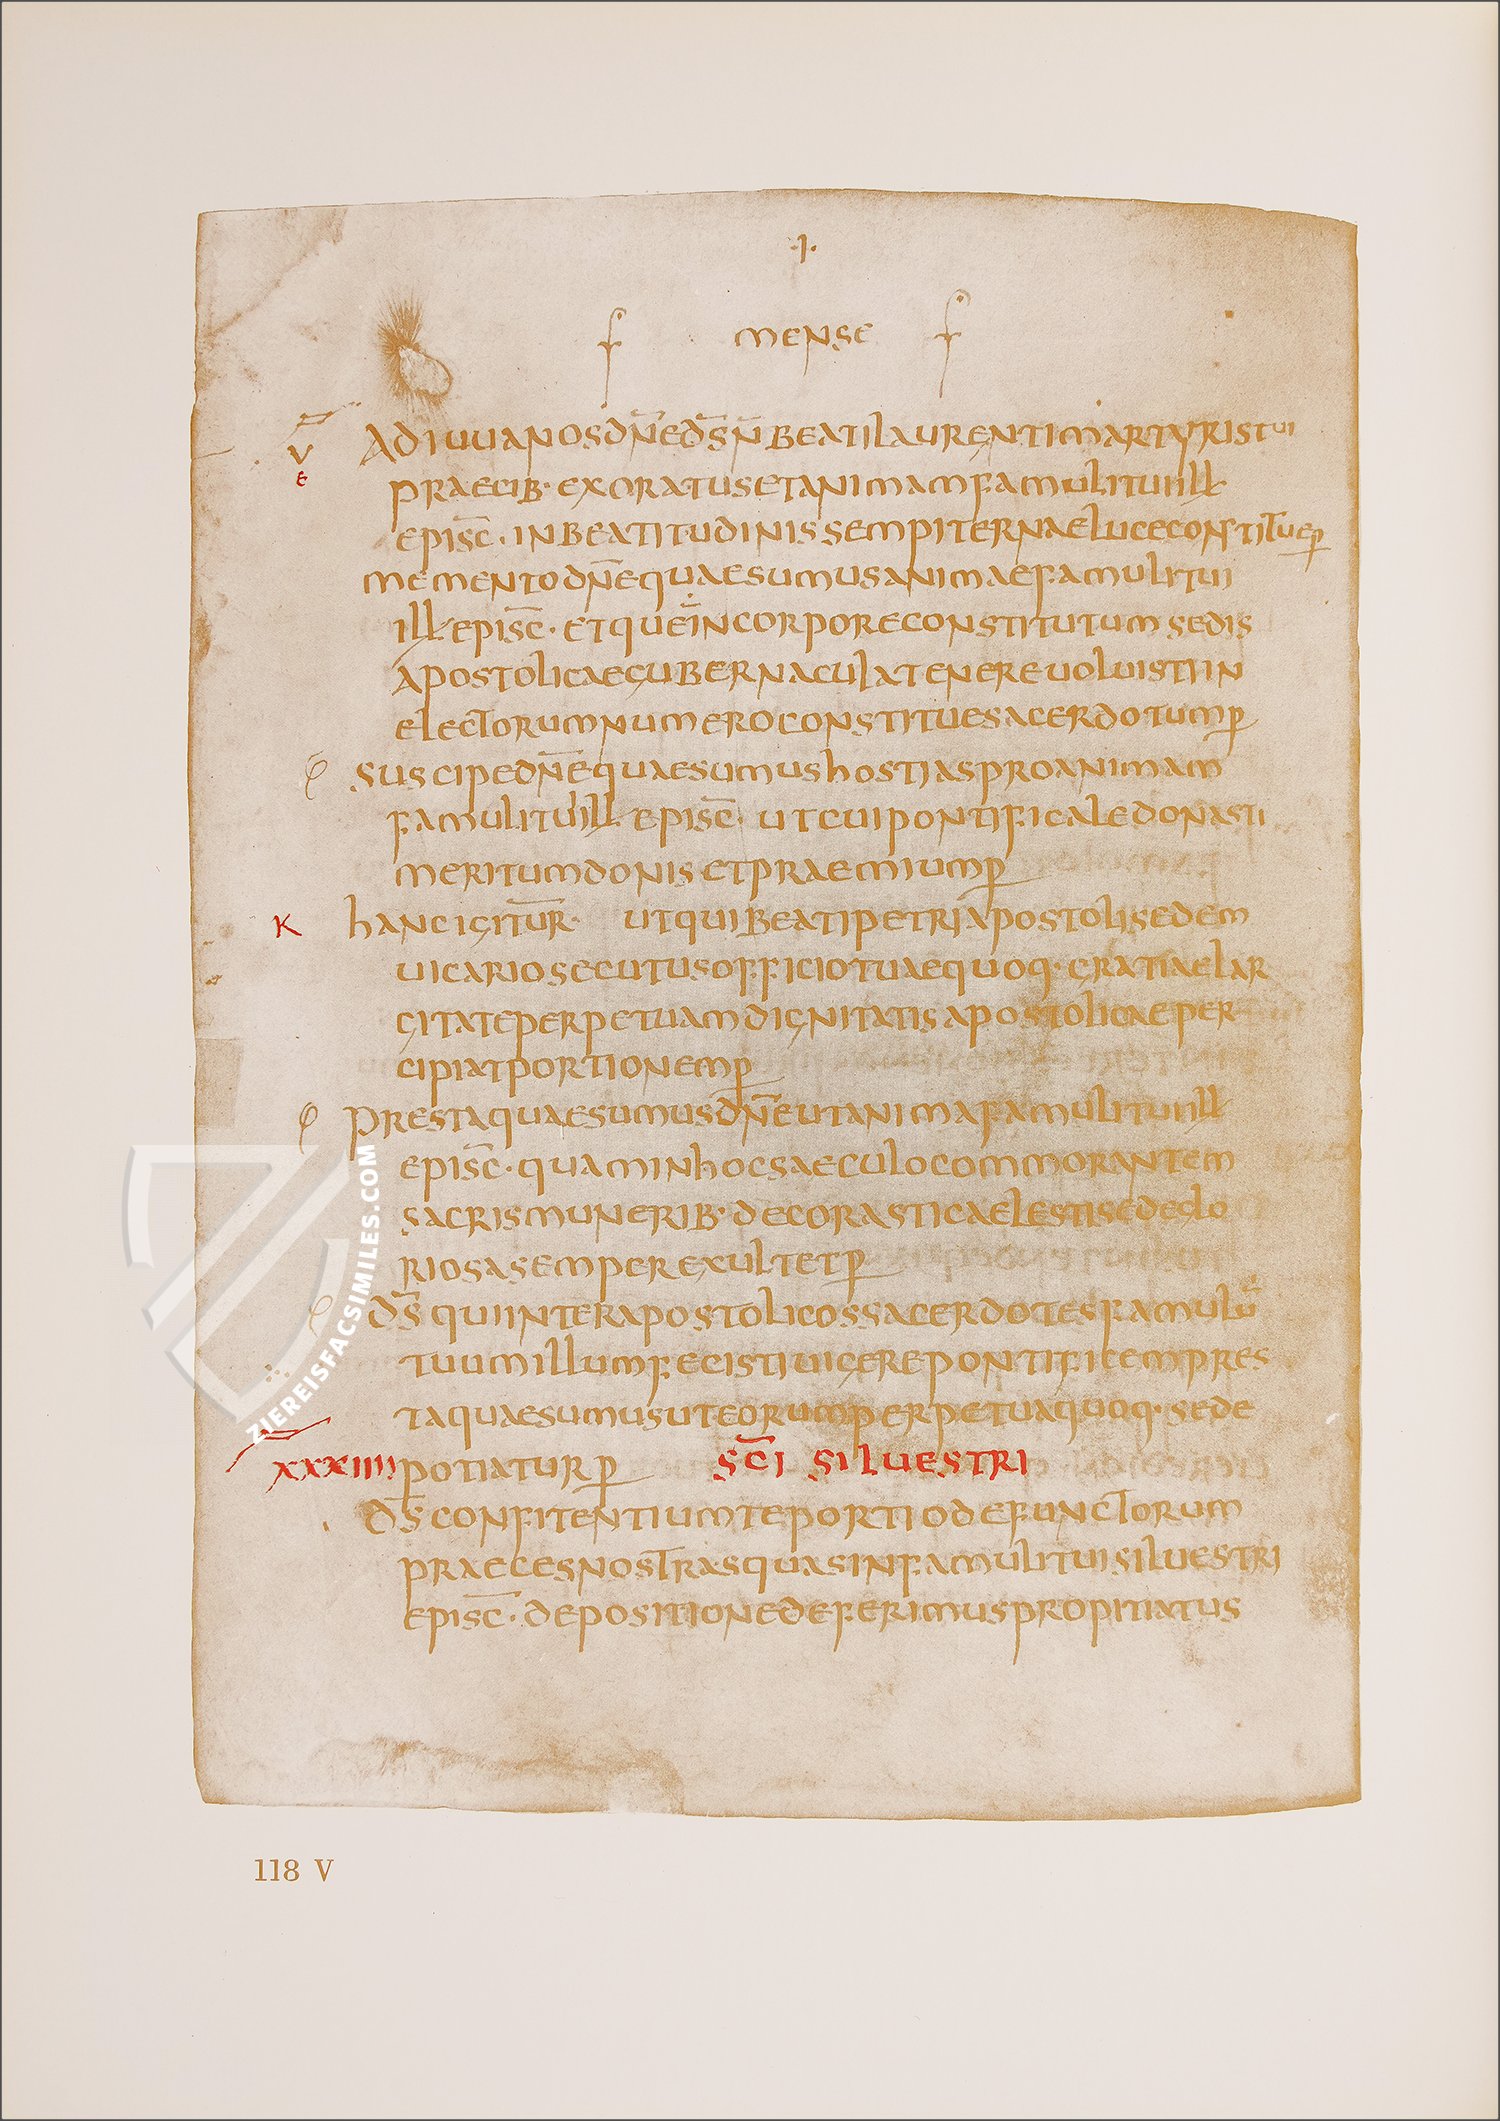 ·I·
MENSE
V
E
ADIUUANOSDN̄EDS̄N̄BEATILAURENTIMARTYRISTUI
PRAECIB· EXORATUSETANIMAMFAMULITUIILL
EPISC̄· INBEATITUDINISSEMPITERNAELUCECONSTITUEP
MEMENTODN̄EQUAESUMUSANIMAEFAMULITUI
ILLEPISC̄· ETQUEINCORPORECONSTITUTUMSEDIS
APOSTOLICAEGUBERNACULATENEREUOLUISTIIN
ELECTORUMNUMEROCONSTITUESACERDOTUMP
SUSCIPEDN̄EQUAESUMUSHOSTIASPROANIMAM
FAMULITUIILL EPISC̄· UTCUIPONTIFICALEDONASTI
MERITUMDONISETPRAEMIUMP
K HANCIGITUR̄· UTQUIBEATIPETRIAPOSTOLISEDEM
UICARIOSECUTUSOFFICIOTUAEQUOQ·GRATIAELAR
GITATEPERPETUAMDIGNITATISAPOSTOLICAEPER
CIPIATPORTIONEMP
PRESTAQUAESUMUSDN̄EUTANIMAFAMULITUIILL
EPISC̄· QUAMINHOCSAECULOCOMMORANTEM
SACRISMUNERIB·DECORASTICAELESTISEDEGLO
RIOSASEMPEREXULTETP
DS̄QUIINTERAPOSTOLICOSSACERDOTESFAMULŪ
TUUMILLUMFECISTIUIGEREPONTIFICEMPRES
TAQUAESUMUSUTEORUMPERPETUAQUOQ·SEDE
XXXIIII POTIATURP SC̄I SILUESTRI
DS̄CONFITENTIUMTEPORTIODEFUNCTORUM
PRAECESNOSTRASQUASINFAMULITUISILUESTRI
EPISC̄· DEPOSITIONEDEFERIMUSPROPITIATUS
ZIEREISFACSIMILES.COM
118 V